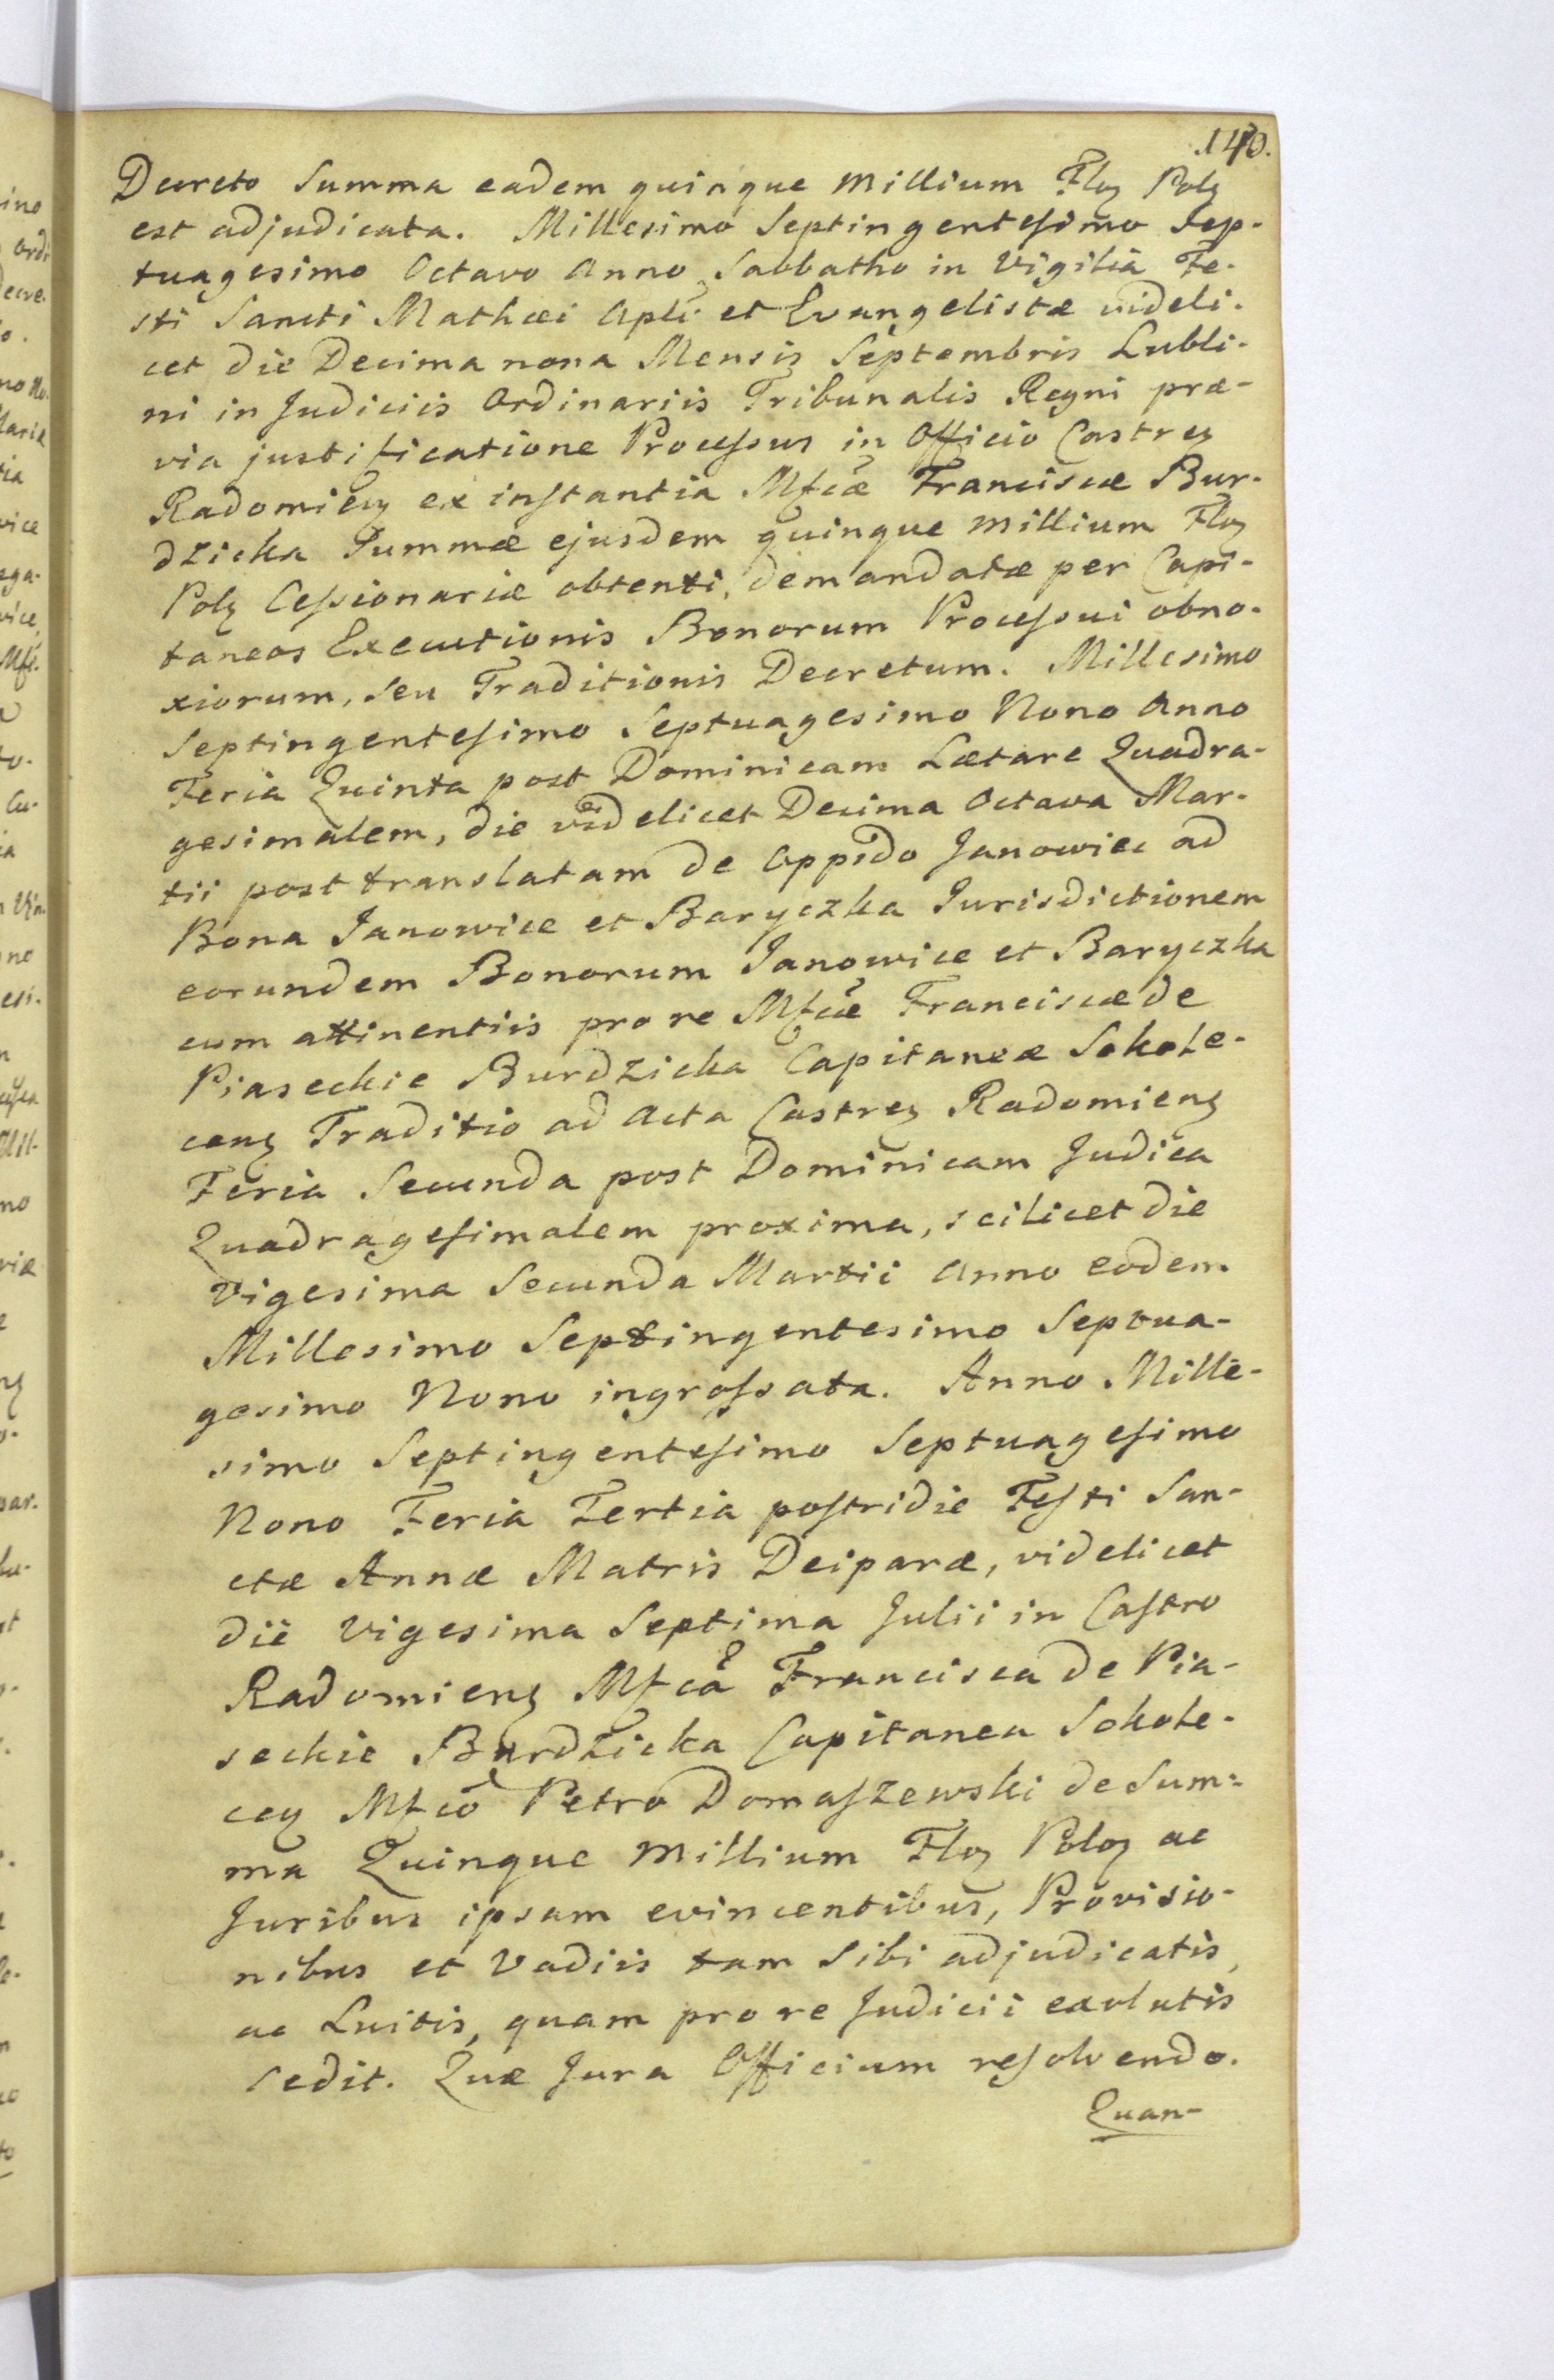 140.
Decreto Summa eadem quinque millium Floꝫ Polꝫ
est adjudicata. Millesimo Septingentesimo Sep-
tuagesimo Octavo Anno Sabbatho in Vigilia Fe-
sti Sancti Mathæi Apli et Evangelistæ videli-
cet die Decima nona Mensis Septembris Lubli-
ni in Judiciis Ordinariis Tribunalis Regni præ-
via justificatione Processus in Officio Castreꝫ
Radomieꝫ ex instantia Mfcæ Franciscæ Bur-
dzicka Summæ ejusdem quinque millium Floꝫ
Polꝫ Cessionariæ obtenti, demandatæ per Capi-
taneos Executionis Bonorum Processui obno-
xiorum, seu Traditionis Decretum. Millesimo
Septingentesimo Septuagesimo Nono Anno
Feria Quinta post Dominicam Lætare Quadra-
gesimalem, die videlicet Decima Octava Mar-
tii post translatam de Oppido Janowiec ad
Bona Janowice et Baryczka Jurisdictionem
eorundem Bonorum Janowice et Baryczka
cum attinentiis pro re Mfcæ Franciscæ de
Piaseckie Burdzicka Capitaneæ Sokole-
cenꝫ Traditio ad Acta Castreꝫ Radomienꝫ
Feria Secunda post Dominicam Judica
Quadragesimalem proxima, scilicet die
Vigesima Secunda Martii Anno eodem
Millesimo Septingentesimo Septua-
gesimo Nono ingrossata. Anno Mille-
simo Septingentesimo Septuagesimo
Nono Feria Tertia postridie Festi San-
ctæ Annæ Matris Deiparæ, videlicet
die Vigesima Septima Julii in Castro
Radomienꝫ Mfca Francisca de Pia-
seckie Burdzicka Capitanea Sokole-
ceꝫ Mfco Petro Domaszewski de Sum-
ma Quinque Millium Floꝫ Poloꝫ ac
Juribus ipsam evincentibus, Provisio-
nibus et Vadiis tam Sibi adjudicatis,
ac Luitis, quam pro re Judicii exolutis
cedit. Quæ Jura Officium resolvendo.
Quan-